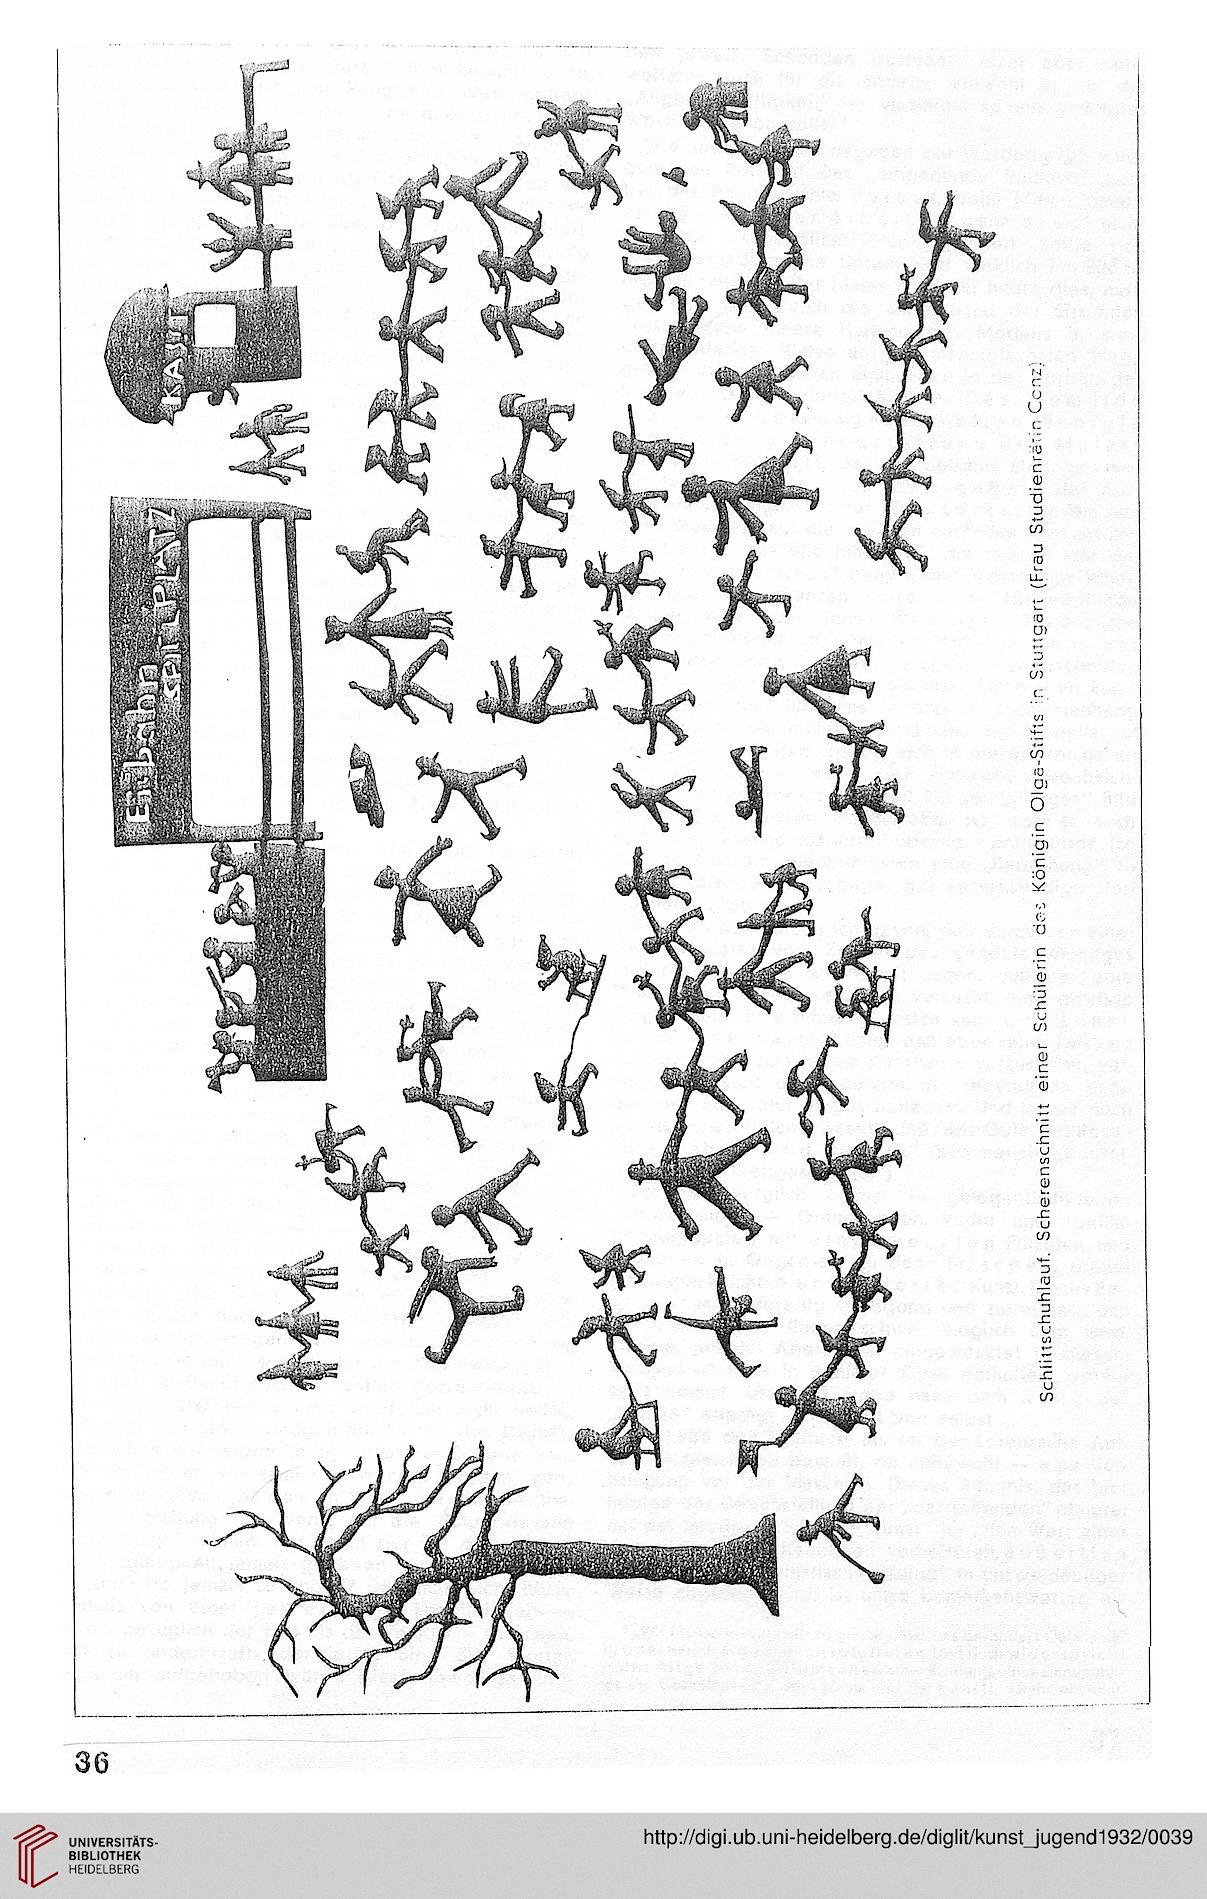 KASSE
Eisbahn
SPIELPLATZ
Schlittschuhlauf. Scherenschnitt einer Schülerin des Königin Olga-Stifts in Stuttgart (Frau Studienrätin Conz)
36
UNIVERSITÄTS-
BIBLIOTHEK
HEIDELBERG
http://digi.ub.uni-heidelberg.de/diglit/kunst_jugend1932/0039